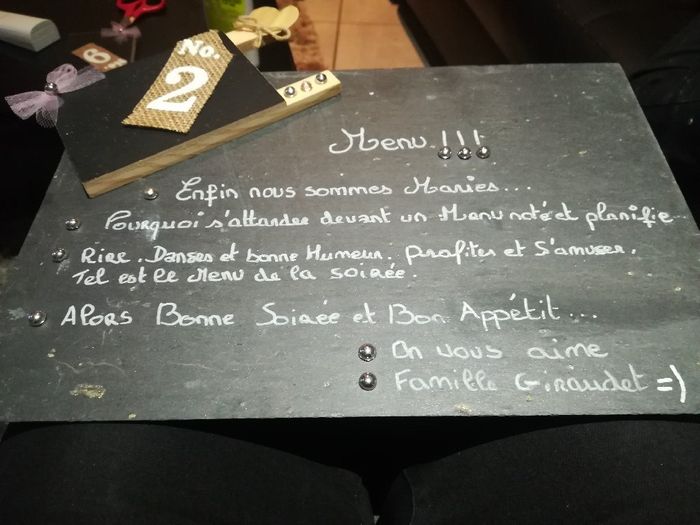 No.
2
6
Menu !!!
Enfin nous sommes Maries...
Pourquoi s'attarder devant un Menu noté et planifie
Rire. Danses et bonne Humeur. Profiter et S'amuser.
Tel est le Menu de la soirée.
Alors Bonne Soirée et Bon Appétit...
On vous aime
Famille Giraudet =)